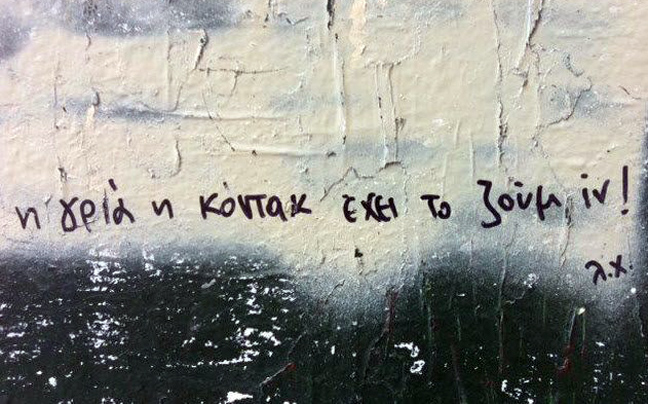 η γριά η κόντακ έχει το ζούμ ιν!
λ.χ.